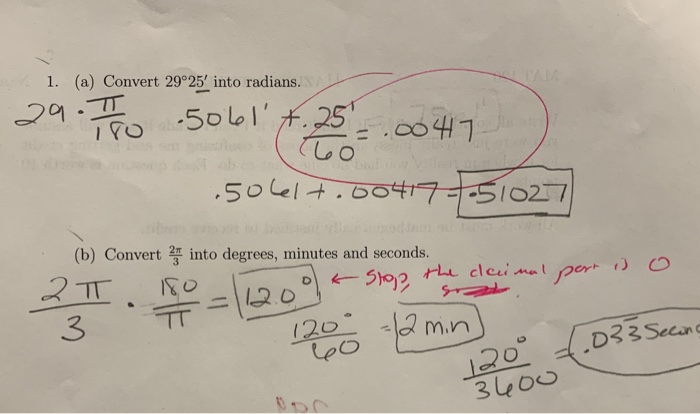 1. (a) Convert 29°25′ into radians.
29 · π/180 .5061' + .25'/60 = .00417
.5061 + .00417 = .51027
(b) Convert 2π/3 into degrees, minutes and seconds.
2π/3 · 180/π = 120° ← Stop, the decimal part is 0
120°/60 = 2 min
120°/3600 = .033 Secon